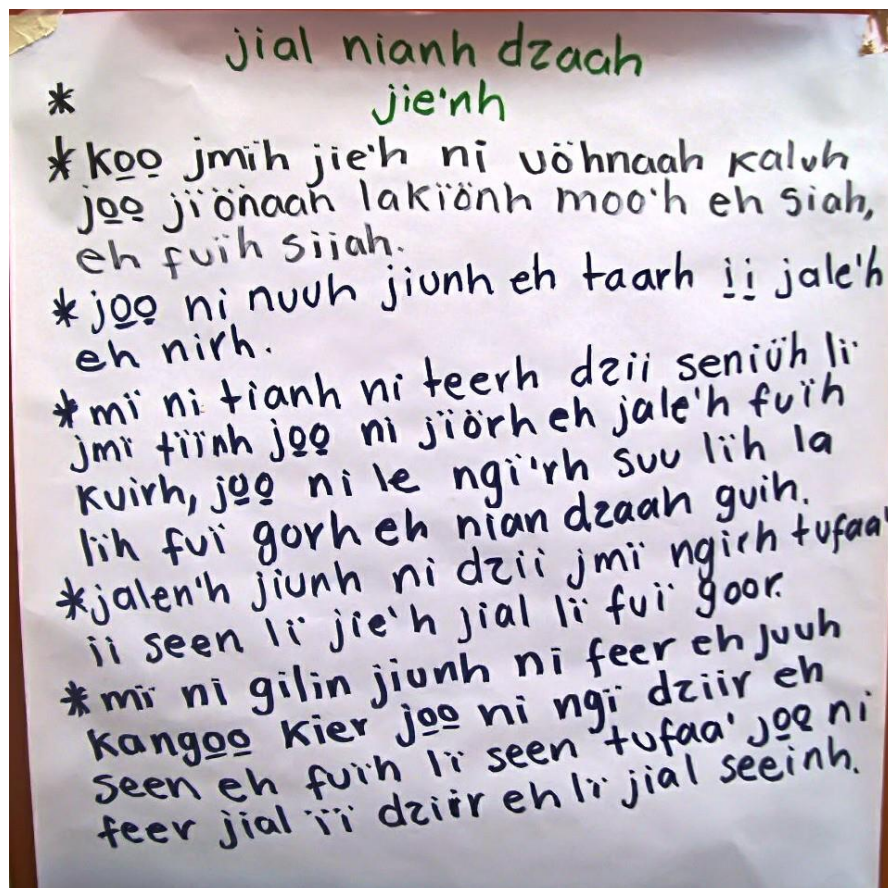 jial nianh dzaah
* jie'nh
* ko̲o̲ jmïh jie'h ni uöhnaah kaluh
jo̲o̲ jïönaah lakïönh moo'h eh siah,
eh fuïh siiah.
* jo̲o̲ ni nuuh jiunh eh taarh i̲i̲ jale'h
eh nirh.
* mï ni tianh ni teerh dzii seniüh lï
jmï tïïnh jo̲o̲ ni jïörh eh jale'h fuïh
kuirh, jo̲o̲ ni le ngï'rh suu lïh la
lïh fuï gorh eh nian dzaah guih.
* jalen'h jiunh ni dzii jmï ngirh tufaa'
ii seen lï jie'h jial lï fuï goor.
* mï ni gilin jiunh ni feer eh juuh
kango̲o̲ kier jo̲o̲ ni ngï dziir eh
seen eh fuïh lï seen tufaa' jo̲o̲ ni
feer jial ïï dziir eh lï jial seeinh.